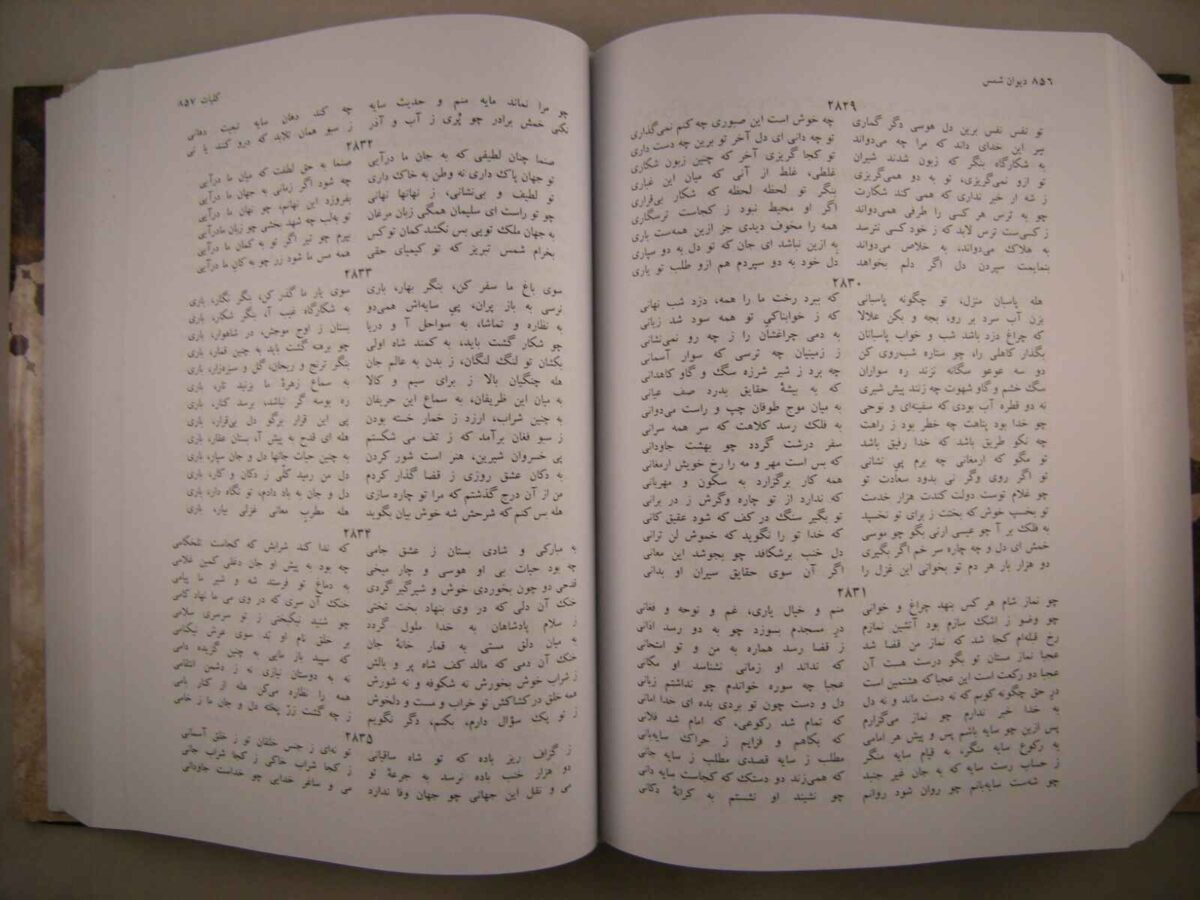 ٨٥٦ دیوان شمس
٢٨٢٩
تو نفس نفس برین دل هوسی دگر گماری چه خوش است این صبوری چه کنم نمی‌گذاری
سر این خدای داند که مرا چه می‌دواند تو چه دانی ای دل آخر تو برین چه دست داری
به شکارگاه بنگر که زبون شدند شیران تو کجا گریزی آخر که چنین زبون شکاری
تو ازو نمی‌گریزی، تو به دو همی‌گریزی غلطی، غلط از آنی که میان این غباری
ز شه ار خبر نداری که همی کند شکارت بنگر تو لحظه لحظه که شکار بی‌قراری
چو به ترس هر کسی را طرفی همی‌دواند اگر او محیط نبود ز کجاست ترسگاری
ز کسی‌ست ترس لابد که ز خود کسی نترسد همه را مخوف دیدی جز ازین همه‌ست باری
به هلاک می‌دواند، به خلاص می‌دواند به ازین نباشد ای جان که تو دل به دو سپاری
بنمایمت سپردن دل اگر دلم بخواهد دل خود به دو سپردم هم ازو طلب تو یاری
٢٨٣٠
هله پاسبان منزل، تو چگونه پاسبانی که ببرد رخت ما را همه، دزد شب نهانی
بزن آب سرد بر رو، بجه و بکن علالا که ز خوابناکی تو همه سود شد زیانی
که چراغ دزد باشد شب و خواب پاسبانان به دمی چراغشان را ز چه رو نمی‌نشانی
بگذار کاهلی را، چو ستاره شب‌روی کن ز زمینیان چه ترسی که سوار آسمانی
دو سه عوعو سگانه نزند ره سواران چه برد ز شیر شرزه سگ و گاو کاهدانی
سگ خشم و گاو شهوت چه زنند پیش شیری که به بیشهٔ حقایق بدرد صف عیانی
نه دو قطره آب بودی که سفینه‌ای و نوحی به میان موج طوفان چپ و راست می‌دوانی
چو خدا بود پناهت چه خطر بود ز راهت به فلک رسد کلاهت که سر همه سرانی
چه نکو طریق باشد که خدا رفیق باشد سفر درشت گردد چو بهشت جاودانی
تو مگو که ارمغانی چه برم پی نشانی که بس است مهر و مه را رخ خویش ارمغانی
تو اگر روی وگر نی بدود سعادت تو همه کار برگزارد به سکون و مهربانی
چو غلام توست دولت کندت هزار خدمت که ندارد از تو چاره وگرش ز در برانی
تو بخسپ خوش که بختت ز برای تو نخسپد تو بگیر سنگ در کف که شود عقیق کانی
به فلک بر آ چو عیسی ارنی بگو چو موسی که خدا تو را نگوید که خموش لن ترانی
خمش ای دل و چه چاره سر خم اگر بگیری دل خنب برشکافد چو بجوشد این معانی
دو هزار بار هر دم تو بخوانی این غزل را اگر آن سوی حقایق سیران او بدانی
٢٨٣١
چو نماز شام هر کس بنهد چراغ و خوانی منم و خیال یاری، غم و نوحه و فغانی
چو وضو ز اشک سازم بود آتشین نمازم در مسجدم بسوزد چو به دو رسد اذانی
رخ قبله‌ام کجا شد که نماز من قضا شد ز قضا رسد هماره به من و تو امتحانی
عجبا نماز مستان تو بگو درست هست آن که نداند او زمانی نشناسد او مکانی
عجبا دو رکعت است این عجبا که هشتمین است عجبا چه سوره خواندم چو نداشتم زبانی
در حق چگونه کوبم که نه دست ماند و نه دل دل و دست چون تو بردی بده ای خدا امانی
به خدا خبر ندارم چو نماز می‌گزارم که تمام شد رکوعی، که امام شد فلانی
پس ازین چو سایه باشم پس و پیش هر امامی که بکاهم و فزایم ز حراک سایه‌بانی
به رکوع سایه منگر، به قیام سایه منگر مطلب ز سایه قصدی مطلب ز سایه جانی
ز حساب رست سایه که به جان غیر جنبد که همی‌زند دو دستک که کجاست سایه دانی
چو شه‌ست سایه‌بانم چو روان شود روانم چو نشیند او نشستم به کرانهٔ دکانی
کلیات ٨٥٧
چو مرا نماند مایه منم و حدیث سایه چه کند دهان سایه تبعیت دهانی
نکنی خمش برادر چو پُری ز آب و آذر ز سبو همان تلابد که درو کنند یا نی
٢٨٣٢
صنما چنان لطیفی که به جان ما درآیی صنما به حق لطفت که میان ما درآیی
تو جهان پاک داری نه وطن به خاک داری چه شود اگر زمانی به جهان ما درآیی
تو لطیف و بی‌نشانی، ز نهانها نهانی بفروزد این نهانم، چو نهان ما درآیی
چو تو راست ای سلیمان همگی زبان مرغان تو به‌لب چه شهد بخشی چو زبان مادرآیی
به جهان ملک تویی بس نکشد کمان تو کس بپرم چو تیر اگر تو به کمان ما درآیی
بخرام شمس تبریز که تو کیمیای حقی همه مس ما شود زر چو به کان ما درآیی
٢٨٣٣
سوی باغ ما سفر کن، بنگر بهار، باری سوی یار ما گذر کن، بنگر نگار، باری
نرسی به باز پران، پی سایه‌اش همی‌دو به شکارگاه غیب آ، بنگر شکار، باری
به نظاره و تماشا، به سواحل آ و دریا بستان ز اوج موجش، در شاهوار، باری
چو شکار گشت باید، به کمند شاه اولی چو برهنه گشت باید به چنین قمار، باری
بکشان تو لنگ لنگان، ز بدن به عالم جان بنگر ترنج و ریحان، گل و سبزه‌زار، باری
هله چنگیان بالا ز برای سیم و کالا به سماع زهرهٔ ما بزنید تار، باری
به میان این ظریفان، به سماع این حریفان ره بوسه گر نباشد، برسد کنار، باری
به چنین شراب، ارزد ز خمار خسته بودن پی این قرار برگو دل بی‌قرار، باری
ز سبو فغان برآمد که ز تف می شکستم هله ای قدح به پیش آ، بستان عقار، باری
پی خسروان شیرین، هنر است شور کردن به چنین حیات جانها دل و جان سپار، باری
به دکان عشق روزی ز قضا گذار کردم دل من رمید کلّی ز دکان و کار، باری
من از آن درج گذشتم که مرا تو چاره سازی دل و جان به باد دادم، تو نگاه دار، باری
هله بس کنم که شرحش شه خوش بیان بگوید هله مطرب معانی غزلی بیار، باری
٢٨٣٤
به مبارکی و شادی بستان ز عشق جامی که ندا کند شرابش که کجاست تلخکامی
چه بود حیات بی او هوسی و چار میخی چه بود به پیش او جان دغلی کمین غلامی
قدحی دو چون بخوردی خوش و شیرگیر گردی به دماغ تو فرستد شه و شیر ما پیامی
خنک آن دلی که در وی بنهاد بخت تختی خنک آن سری که در وی می ما نهاد کامی
ز سلام پادشاهان به خدا ملول گردد چو شنید نیکبختی ز تو سرسری سلامی
به میان دلق مستی به قمار خانهٔ جان بر خلق نام او بد سوی عرش نیکنامی
خنک آن دمی که مالد کف شاه پر و بالش که سپید باز مایی به چنین گزیده دامی
ز شراب خوش بخورش نه شکوفه و نه شورش نه به دوستان نیازی نه ز دشمن انتقامی
همه خلق در کشاکش تو خراب و مست و دلخوش همه را نظاره می‌کن هله از کنار بامی
ز تو یک سؤال دارم، بکنم، دگر نگویم ز چه گشت زرّ پخته دل و جان ما ز خامی
٢٨٣٥
ز گزاف ریز باده که تو شاه ساقیانی تو نه‌ای ز جنس خلقان تو ز خلق آسمانی
دو هزار خنب باده نرسد به جرعهٔ تو ز کجا شراب خاکی ز کجا شراب جانی
می و نقل این جهانی چو جهان وفا ندارد می و ساغر خدایی چو خداست جاودانی